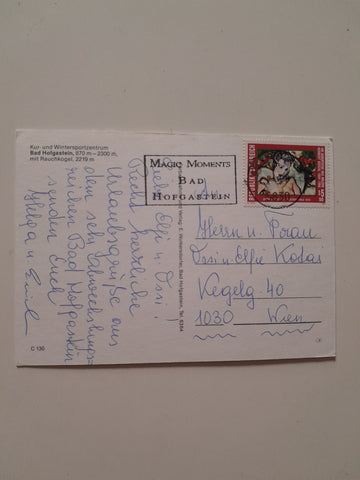 Kur- und Wintersportzentrum
Bad Hofgastein, 870 m – 2300 m,
mit Rauchkogel, 2219 m
Liebe Elfi u. Ossi!
Recht herzliche
Urlaubsgrüße aus
dem sehr
reichen Bad Hofgastein
senden Euch
Helga u. Emil
C 130
Verlag: E. Wintersdorfer, Bad Hofgastein, Tel. 6364
MAGIC MOMENTS
BAD
HOFGASTEIN
REPUBLIK ÖSTERREICH
S5
An
Herrn u. Frau
Ossi u. Elfie Kotas
Kegelg. 40
1030 Wien